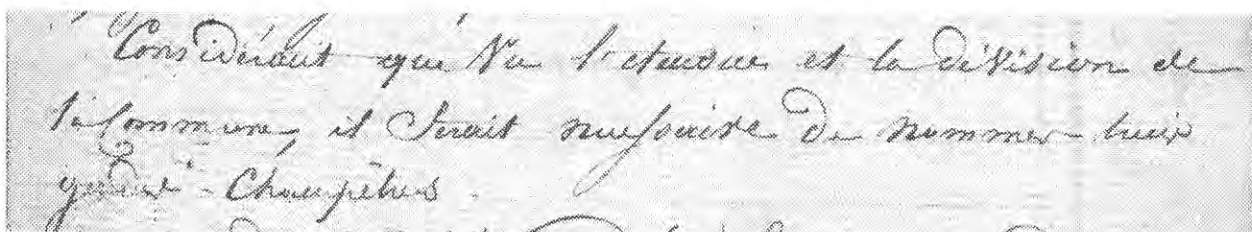 Considérant que Vu l'etendue et la division de
la Commune, il Serait nécessaire de nommer
gardes-Champêtres.